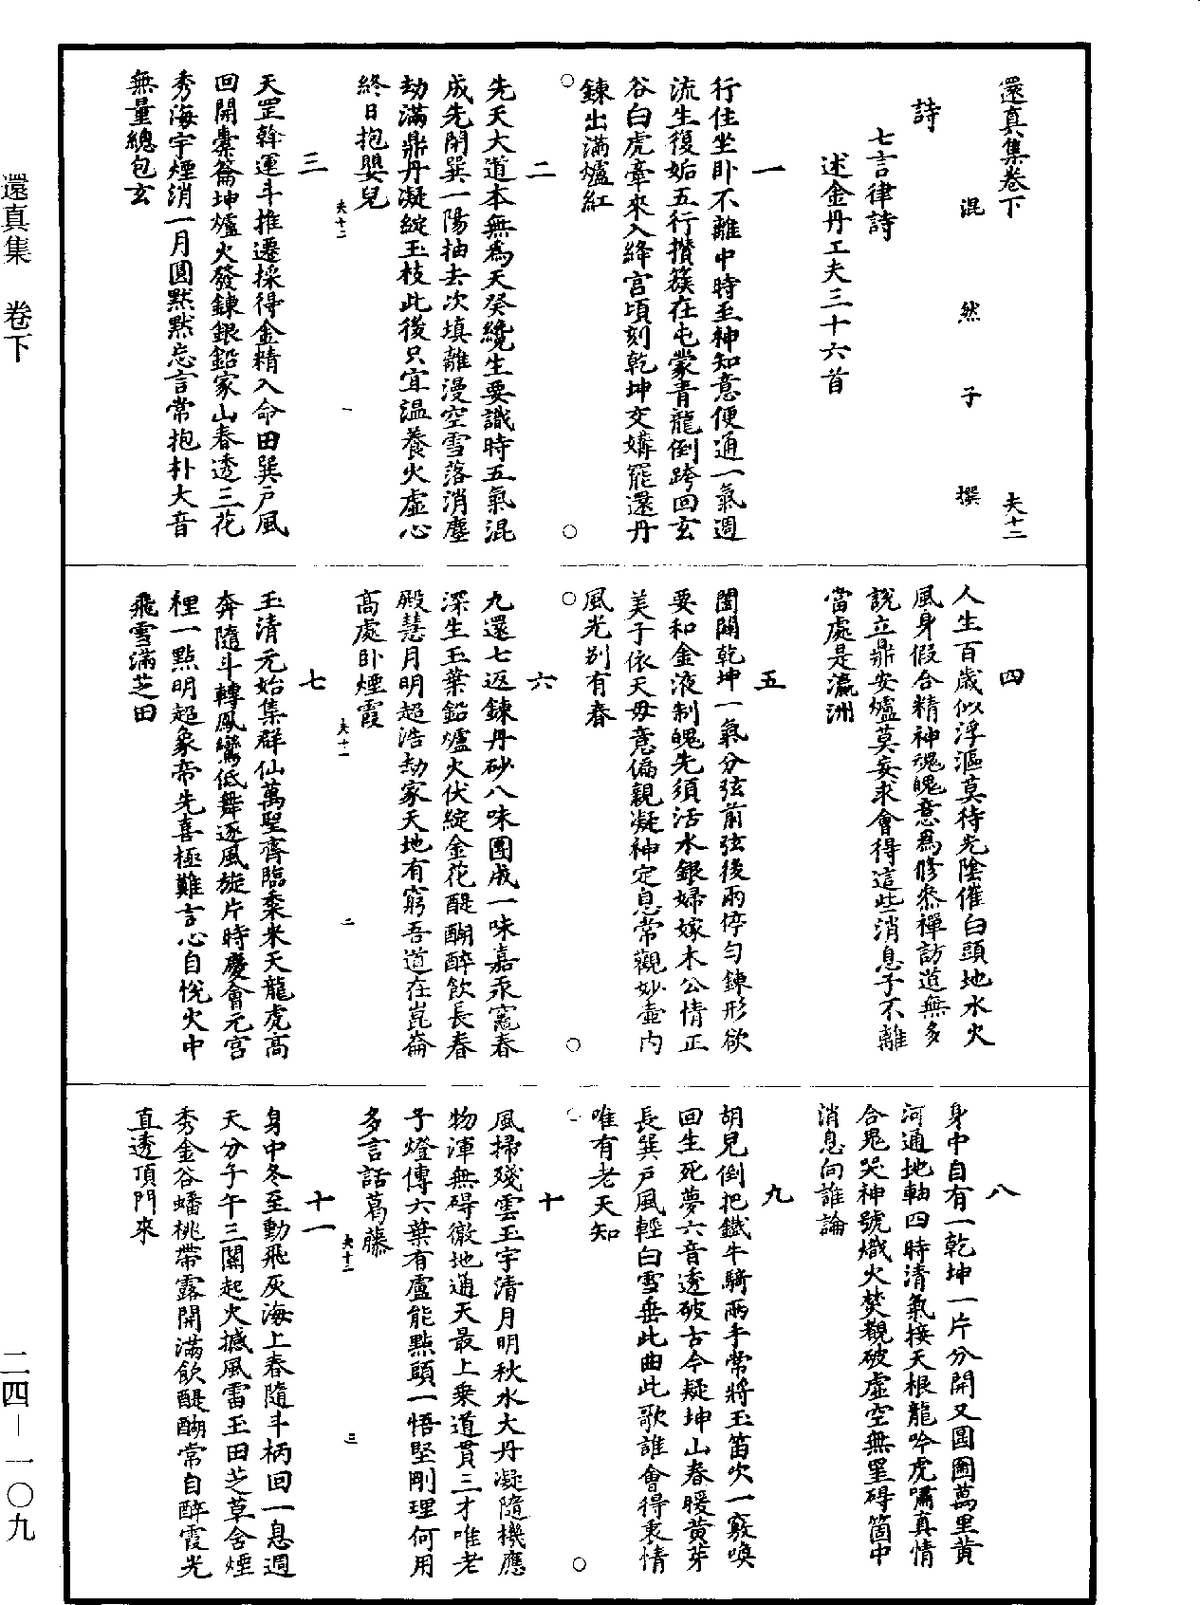 還真集卷下　夫十二
混然子撰
詩
七言律詩
述金丹工夫三十六首
一
行住坐卧不離中時至神知意便通一氣週
流生復姤五行攅簇在屯蒙青龍倒跨回玄
谷白虎牽來入絳宫頃刻乾坤交媾罷還丹
鍊出滿爐紅
二
先天大道本無為天癸纔生要識時五氣混
成先閉巽一陽抽去次填離漫空雪落消塵
劫滿鼎丹凝綻玉枝此後只宜温養火虛心
終日抱嬰兒
夫十二　一
三
天罡斡運斗推遷採得金精入命田巽户風
回開橐籥坤爐火發鍊銀鉛家山春透三花
秀海宇煙消一月圓默默忘言常抱朴大音
無量總包玄
四
人生百歲似浮漚莫待光陰催白頭地水火
風身假合精神魂魄意為修叅禪訪道無多
說立鼎安爐莫妄求會得這些消息子不離
當處是瀛洲
五
闔闢乾坤一氣分弦前弦後兩停勻鍊形欲
要和金液制魄先須活水銀婦嫁木公情正
美子依天母意偏親凝神定息常觀妙壺内
風光别有春
六
九還七返鍊丹砂八味團成一味嘉汞竈春
深生玉葉鉛爐火伏綻金花醍醐醉飲長春
殿慧月明超浩劫家天地有窮吾道在崑崙
高處卧煙霞
夫十一　二
七
玉清元始集群仙萬聖齊臨黍米天龍虎高
奔隨斗轉鳳鸞低舞逐風旋片時慶會元宫
裡一點明超象帝先喜極難言心自悅火中
飛雪滿芝田
八
身中自有一乾坤一片分開又圓圇萬里黄
河通地軸四時清氣接天根龍吟虎嘯真情
合鬼哭神號熾火焚觀破虛空無罣碍箇中
消息向誰論
九
胡兒倒把鐵牛騎兩手常將玉笛吹一竅喚
回生死夢六音透破古今疑坤山春暖黄芽
長巽戸風輕白雪垂此曲此歌誰會得衷情
唯有老天知
十
風掃殘雲玉宇清月明秋水大丹凝隨機應
物渾無碍徹地通天最上乘道貫三才唯老
子燈傳六葉有盧能點頭一悟堅剛理何用
多言話葛藤
夫十二　三
十一
身中冬至動飛灰海上春隨斗柄回一息週
天分子午三關起火撼風雷玉田芝草含煙
秀金谷蟠桃帶露開滿飲醍醐常自醉霞光
直透頂門來
還真集　卷下
二四－一〇九